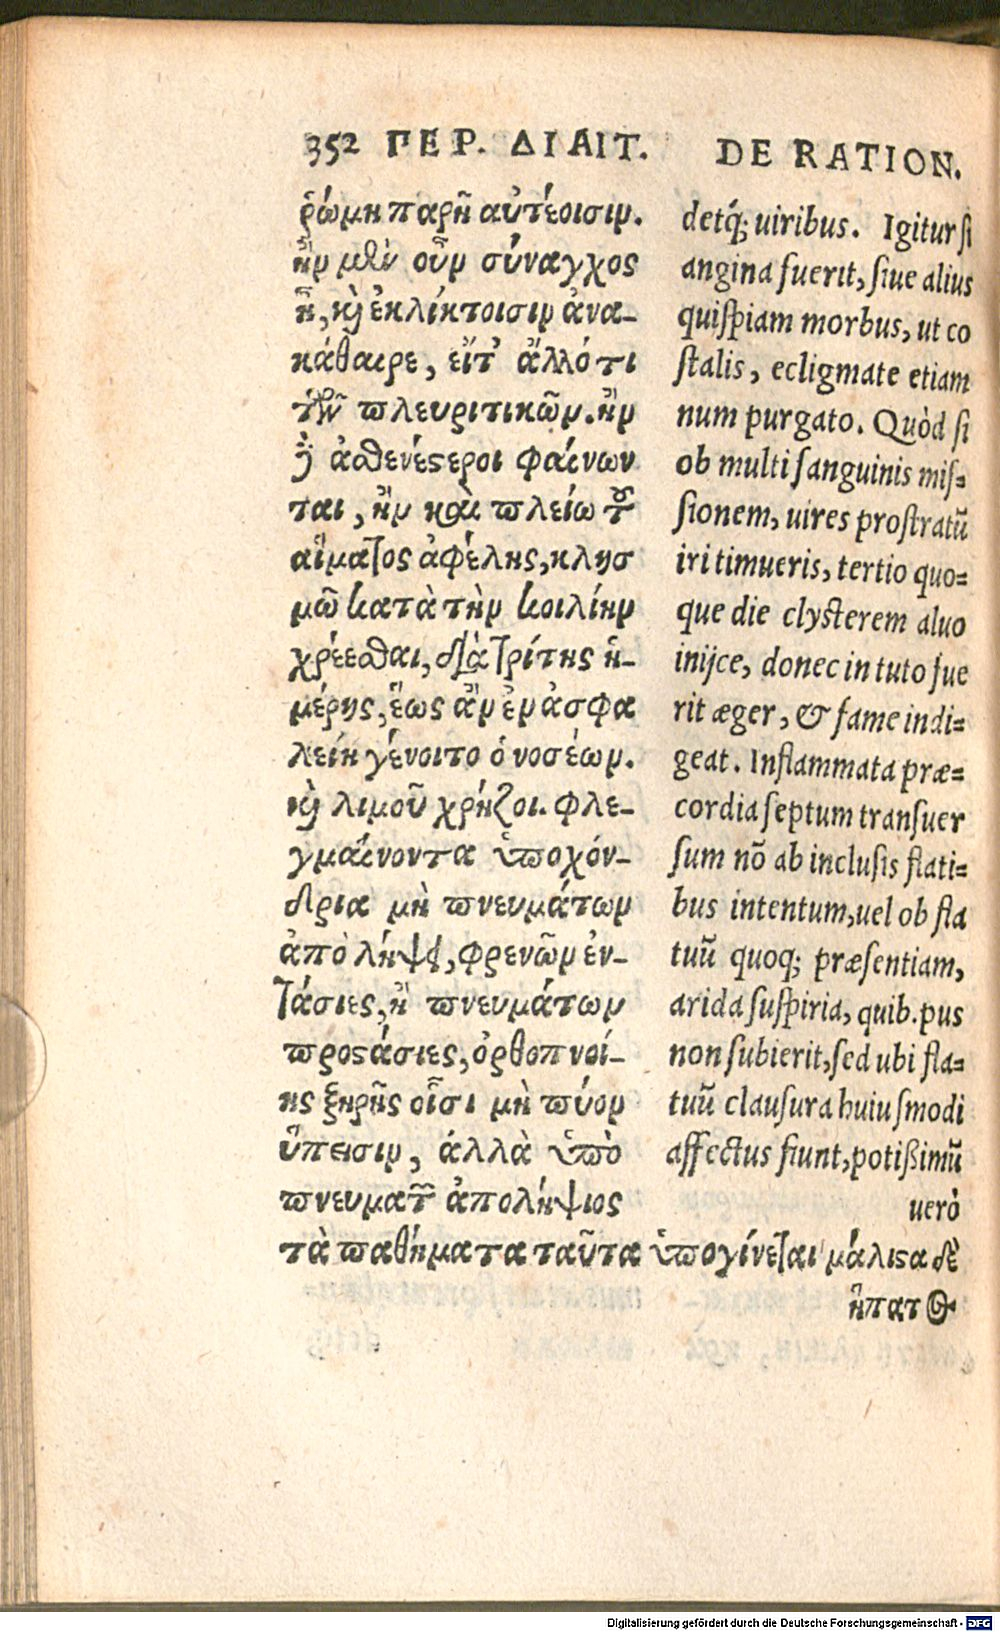 352 ΠΕΡ. ΔΙΑΙΤ.
ῥώμη παρῇ αὐτέοισιν.
ἢν μὲν οὖν σύναγχος
ᾖ, καὶ ἐκλίκτοισιν ἀνα-
κάθαιρε, εἴτ' ἄλλό τι
τῶν πλευριτικῶν. ἢν
δὲ ἀσθενέστεροι φαίνων
ται, ἢν καὶ πλείω τοῦ
αἵματος ἀφέλῃς, κλυσ
μῷ κατὰ τὴν κοιλίην
χρέεσθαι, διὰ τρίτης ἡ-
μέρης, ἕως ἂν ἐν ἀσφα
λείῃ γένοιτο ὁ νοσέων.
καὶ λιμοῦ χρῄζοι. φλε-
γμαίνοντα ὑποχόν-
δρια μὴ πνευμάτων
ἀπὸ λήψει, φρενῶν ἐν-
τάσιες, ἢ πνευμάτων
προστάσιες, ὀρθοπνοί-
ης ξηρῆς οἷσι μὴ πύον
ὕπεισιν, ἀλλὰ ὑπὸ
πνευμάτων ἀπολήψιος
τὰ παθήματα ταῦτα ὑπογίνεται μάλιστα δὲ
ἥπατος
DE RATION.
detq́; uiribus. Igitur si
angina fuerit, siue alius
quispiam morbus, ut co
stalis, ecligmate etiam
num purgato. Quòd si
ob multi sanguinis mis=
sionem, uires prostratũ
iri timueris, tertio quo=
que die clysterem aluo
inijce, donec in tuto fue
rit æger, & fame indi=
geat. Inflammata præ=
cordia septum transuer
sum nõ ab inclusis flati=
bus intentum, uel ob fla
tuũ quoq; præsentiam,
arida suspiria, quib. pus
non subierit, sed ubi fla=
tuũ clausura huiusmodi
affectus fiunt, potißimũ
uerò
Digitalisierung gefördert durch die Deutsche Forschungsgemeinschaft - DFG